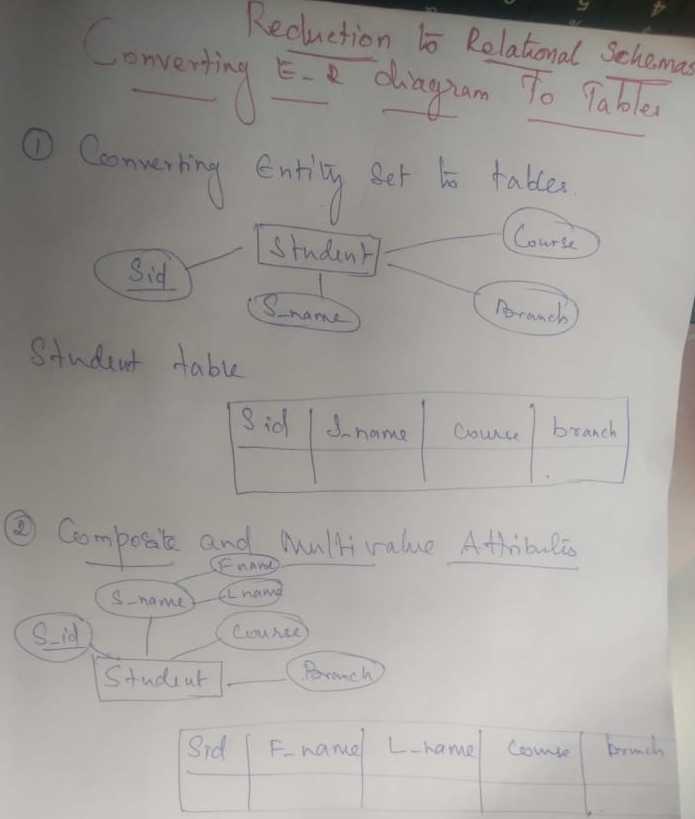 Reduction to Relational Schemas
Converting E-R diagram To Tables
① Converting Entity Set to tables.
Student
Course
Sid
S_name
Branch
Student table
Sid S_name Course branch
② Composite and Multivalue Attributes
Fname
S_name Lname
S_id Course
Student Branch
Sid F_name L_name Course branch